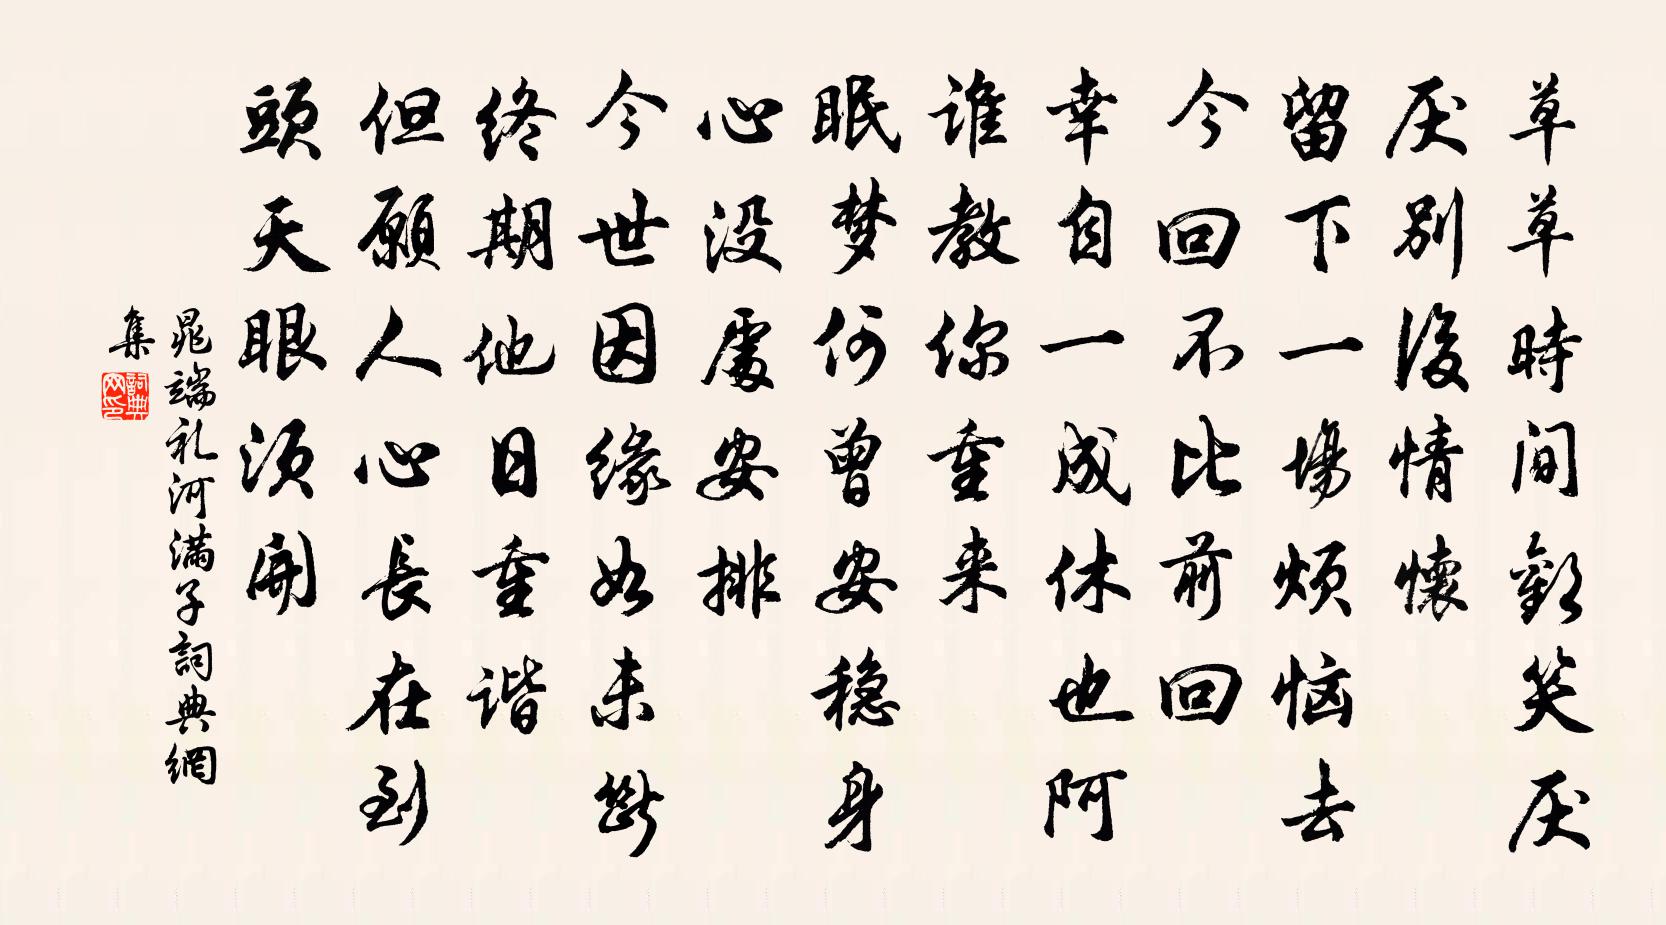 草草時间歡笑厌
厌别後情懷
留下一場烦恼去
今回不比前回
幸自一成休也阿
谁教你重来
眠梦何曾安稳身
心没處安排
今世因缘如未斷
终期他日重谐
但願人心長在到
頭天眼须開
晁端礼河满子詞典網
集
詞典网印